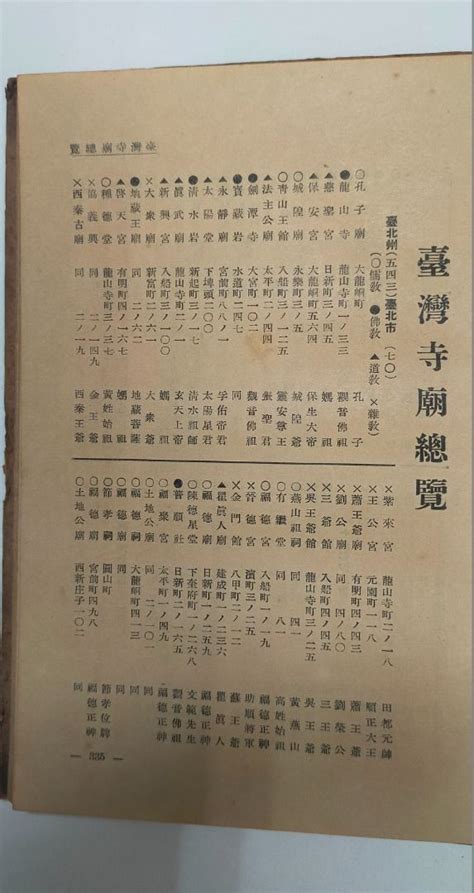 臺灣寺廟總覽
臺灣寺廟總覽
臺北州(五四三)臺北市 (七〇)
(〇儒教 ●佛教 ▲道教 ×雜教)
〇孔子廟 大龍峒町 孔子
●龍山寺 龍山寺町一ノ三三 觀音佛祖
▲慈聖宮 日新町三ノ四五 媽祖
▲保安宮 大龍峒町五六四 保生大帝
〇城隍廟 永樂町三ノ五 城隍爺
〇青山王館 入船町三ノ一二五 靈安尊王
▲法主公廟 太平町二ノ四 張聖君
●劍潭寺 大宮町一〇二 觀音佛祖
●寶藏岩 水道町二四七 同
▲永靜廟 宮前町八八ノ一 孚佑帝君
▲太陽堂 下埤頭二〇〇 太陽星君
●清水岩 新起町三ノ一 清水祖師
▲眞武廟 龍山寺町二ノ一 玄天上帝
▲新興宮 入船町三ノ一〇 媽祖
×大衆廟 新富町二ノ六一 大衆爺
●地藏王廟 同 二ノ六二 地藏菩薩
▲啓天宮 有明町四ノ一六 媽祖
〇種德堂 龍山寺町三ノ三七 黄姓始祖
×協義興 同 二ノ四九 金王爺
×西秦古廟 同 二ノ一九 西秦王爺
×紫來宮 龍山寺町二ノ一八 田都元帥
×王公宮 元園町一一八 順正大王
×蕭王爺廟 有明町四ノ二三 蕭王爺
×劉公廟 同 四ノ八〇 劉榮公
×三爺館 入船町四ノ五四 三王爺
×吳王爺館 龍山寺町三ノ二五 吳王爺
〇燕山祖祠 同 四一 黃燕山
〇有繼堂 同 一八 高姓始祖
×晉德宮 入船町一ノ八一 助順將軍
×金門館 濱町三ノ二五 蘇王爺
▲崔眞人廟 八甲町二ノ一二 崔眞人
〇福德星 建成町一ノ二三六 福德正神
〇陳德星堂 下奎府町一ノ二六八 文範先生
●普願社 日新町二ノ一六五 觀音佛祖
〇福聚宮 太平町一ノ四二 福德正神
〇土地公廟 同 二ノ一〇一 同
〇福德廟 大龍峒町四四八 同
〇節孝祠 圓山町 節孝位牌
〇福德廟 宮前町四九八 福德正神
〇土地公廟 西新庄子一〇二 同
— 335 —